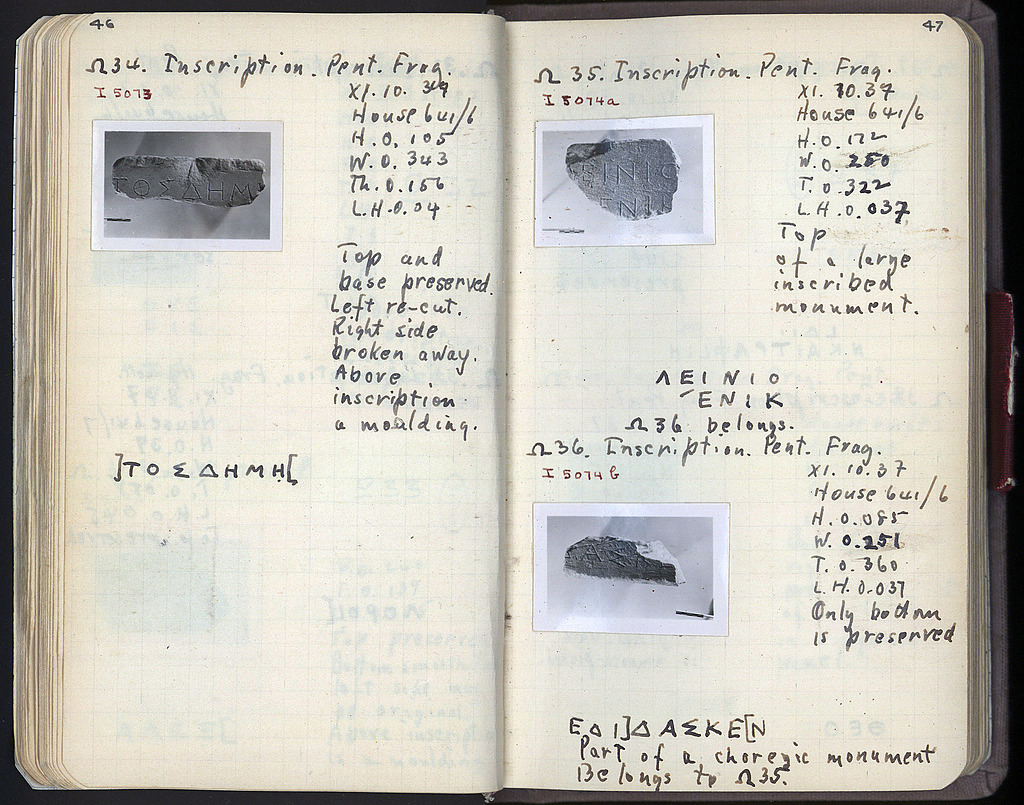 46
Ω34. Inscription. Pent. Frag.
I 5073
XI. 10. 37
House 641/6
H. 0. 105
W. 0. 343
Th. 0. 156
L.H. 0.04
ΤΟΣΔΗΜ
Top and
base preserved.
Left re-cut.
Right side
broken away.
Above
inscription
a moulding.
]ΤΟΣΔΗΜΗ[
47
Ω 35. Inscription. Pent. Frag.
I 5074a
XI. 10.37
House 641/6
H. 0. 172
W. 0. 250
T. 0. 322
L.H. 0.037
ΕΙΝΙΟ
ΕΝΙΚ
Top
of a large
inscribed
monument.
ΛΕΙΝΙΟ
ΕΝΙΚ
Ω36 belongs.
Ω36. Inscription. Pent. Frag.
I 5074 b
XI. 10.37
House 641/6
H. 0.085
W. 0.251
T. 0. 360
L.H. 0.037
ΑΣΚ
Only bottom
is preserved
ΕΔΙ]ΔΑΣΚΕ[Ν
Part of a choregic monument
Belongs to Ω35.